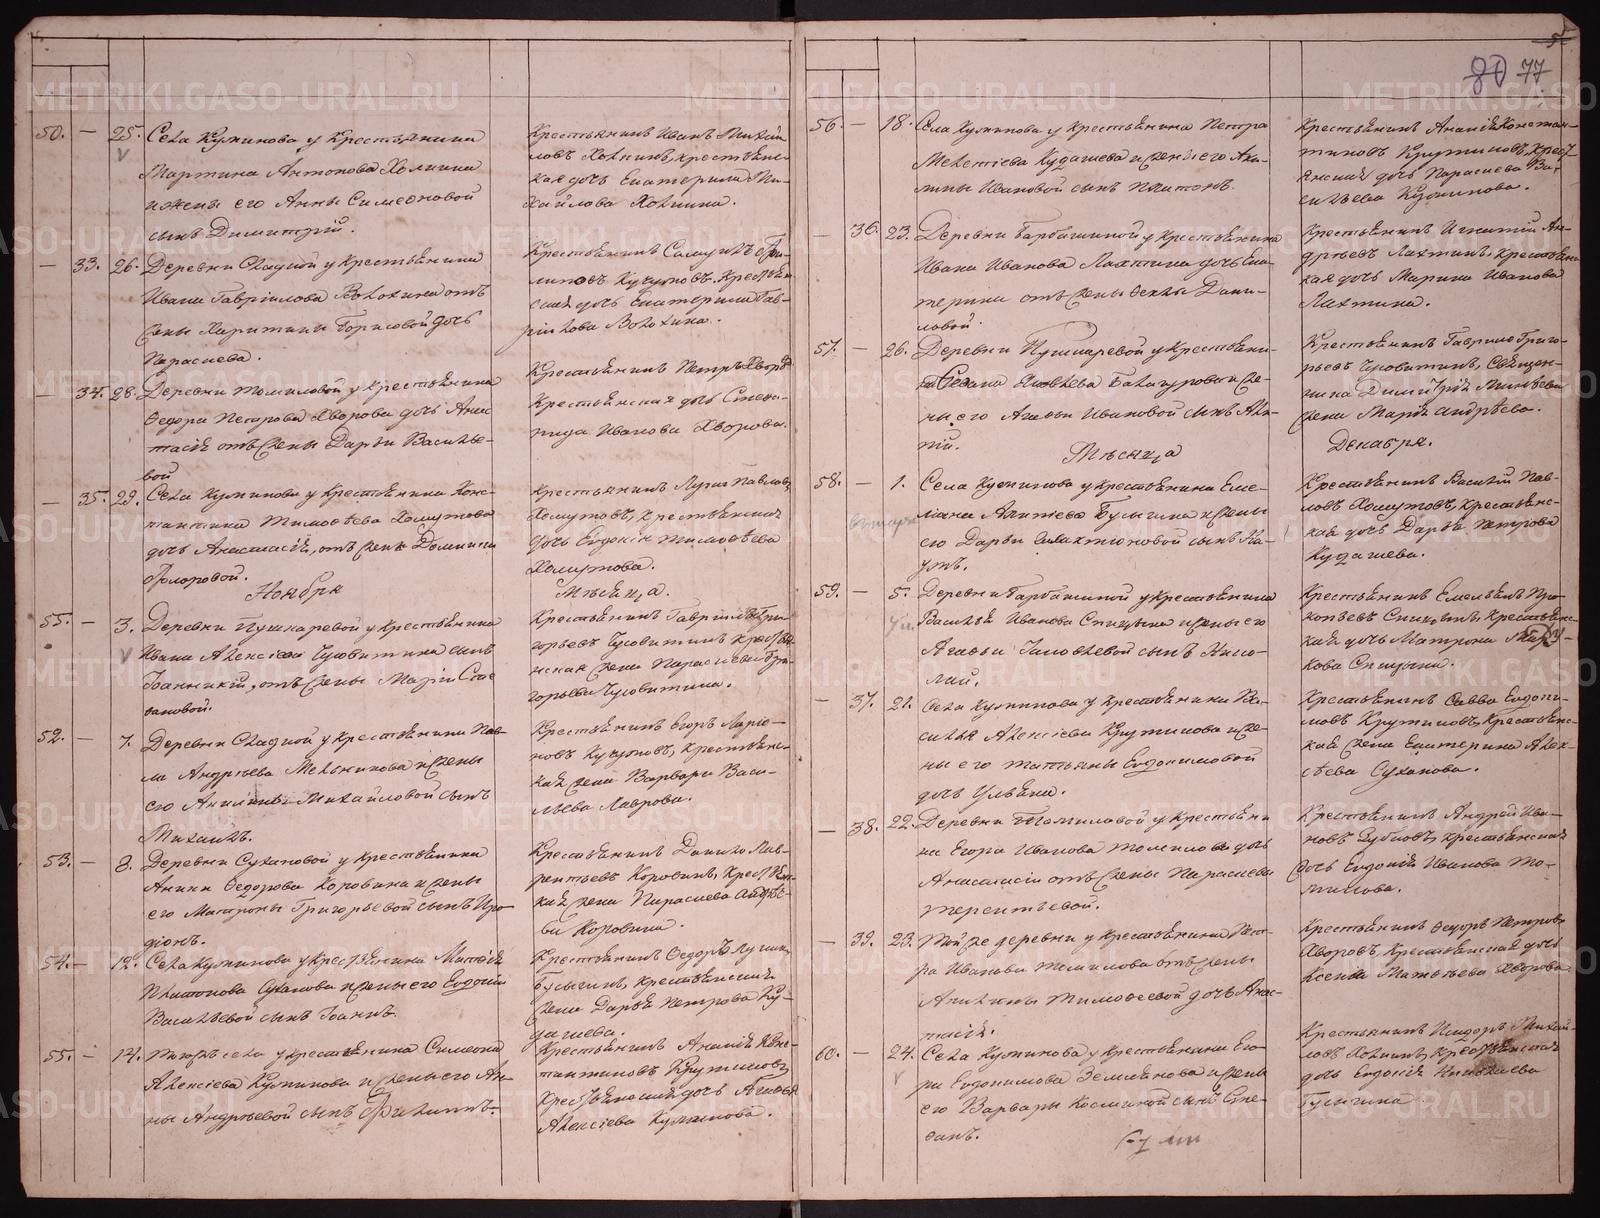 5
80 77
50. — 25. Села Куминова у крестьянина
Мартина Антонова Холкина
и жены его Анны Симеоновой
сынъ Димитрій.
Крестьянинъ Иванъ Михай-
ловъ Холкинъ, крестьянс-
кая дочь Екатерина Ми-
хайлова Холкина.
— 33. 26. Деревни Сладкой у крестьянина
Ивана Гавріилова Волохина отъ
жены Харитины Борисовой дочь
Параскева.
Крестьянинъ Самуилъ Фи-
липовъ Кукузовъ, крестьян-
ская дочь Екатерина Гав-
ріилова Волохина.
— 34. 28. Деревни Томиловой у крестьянина
Ѳедора Петрова Хворова дочь Анас-
тасія отъ жены Дарьи Василье-
вой
Крестьянинъ Петръ Хворовъ
Крестьянская дочь Степа-
нида Иванова Хворова.
— 35. 29. Села Куминова у крестьянина Конс-
тантина Тимоѳѣева Хомутова
дочь Анастасія, отъ жены Домники
Флоровой.
Крестьянинъ Лука Павловъ
Хомутовъ, крестьянская
дочь Евдокія Тимоѳѣева
Хомутова.
Ноября Мѣсяца.
55. — 3. Деревни Пушкаревой у крестьянина
Ивана Алексіева Чусовитина сынъ
Іоанникій, отъ жены Маріи Сте-
фановой.
Крестьянинъ Гавріилъ Гри-
горьевъ Чусовитинъ крестья-
нская жена Параскева Гри-
горьева Чусовитина.
52. — 7. Деревни Сладкой у крестьянина Пав-
ла Андреева Мельникова и жены
его Акилины Михайловой сынъ
Михаилъ.
Крестьянинъ Егоръ Ларіо-
новъ Кукузовъ, крестьянс-
кая жена Варвара Васи-
льева Лаврова.
53. — 8. Деревни Сухановой у крестьянина
Аники Ѳедорова Коровина и жены
его Матроны Григорьевой сынъ Иро-
діонъ.
Крестьянинъ Данило Лав-
рентьевъ Коровинъ, крестьян-
кая жена Параскева
Коровина.
54. — 12. Села Куминова у крестьянина Матвѣя
Платонова Суханова и жены его Евдокіи
Васильевой сынъ Іоаннъ.
Крестьянинъ Ѳедоръ Лукинъ
Булыгинъ, крестьянская
жена Дарья Петрова Ку-
дашева.
55. — 14. Тогожъ села у крестьянина Симеона
Алексіева Куминова и жены его Ан-
ны Андреевой сынъ Филиппъ.
Крестьянинъ Ананія Конс-
тантиновъ Крутиковъ
Крестьянская дочь Агафья
Алексіева Куминова.
56. — 18. Села Куминова у крестьянина Петра
Мелетіева Кудашева и жены его Аки-
лины Ивановой сынъ Платонъ.
Крестьянинъ Ананія Констан-
тиновъ Крутиковъ, крест-
янская дочь Параскева Ва-
сильева Куминова.
— 36. 23. Деревни Барбашиной у крестьянина
Ивана Иванова Лахтина дочь Ека-
терина отъ жены Ѳеклы Дани-
ловой.
Крестьянинъ Игнатій Ан-
дреевъ Лахтинъ, крестьянс-
кая дочь Марина Иванова
Лахтина.
57. — 26. Деревни Пушкаревой у крестьяни-
на Яковлева Балакурова и же-
ны его Агафьи Ивановой сынъ
Крестьянинъ Гаврило Григо-
рьевъ Чусовитинъ, Священ-
ника Димитрія
жена Марія Андреева.
Мѣсяца Декабря.
58. — 1. Села Куминова у крестьянина Еме-
лiана Булыгина и жены
его Дарьи Галактіоновой сынъ На-
умъ.
Крестьянинъ Василій Пав-
ловъ Хомутовъ, крестьянс-
кая дочь Дарья Петрова
Кудашева.
59. — 5. Деревни Барбашиной у крестьянина
Василія Иванова Спицына и жены его
Агафьи Тимоѳѣевой сынъ Нико-
лай.
Крестьянинъ Емельянъ Про-
копьевъ крестьянс-
кая дочь Матрона
Спицына.
— 37. 21. Села Куминова у крестьянина Ва-
силья Алексіева Крутикова и же-
ны его Татьяны Евдокимовой
дочь Ульяна.
Крестьянинъ Савва Евдоки-
мовъ Крутиковъ, крестьянс-
кая жена Екатерина Алек-
сѣева Суханова.
— 38. 22. Деревни Томиловой у крестьяни-
на Егора Иванова Томилова дочь
Анастасія отъ жены Параскевы
Терентьевой.
Крестьянинъ Андрей Ива-
новъ Зубковъ, крестьянская
дочь Евдокія Иванова То-
милова.
— 39. 23. Той же деревни у крестьянина Пет-
ра Иванова Томилова отъ жены
Акилины Тимоѳеевой дочь Анас-
тасія.
Крестьянинъ Ѳедоръ Петровъ
Хворовъ, крестьянская дочь
Ксенія Матвѣева Хворова
60. — 24. Села Куминова у крестьянина Его-
ра Евдокимова Землянова и жены
его Варвары Косминой сынъ Сте-
фанъ.
Крестьянинъ Исидоръ Михай-
ловъ Холкинъ, крестьянская
дочь Евдокія Николаева
Булыгина.